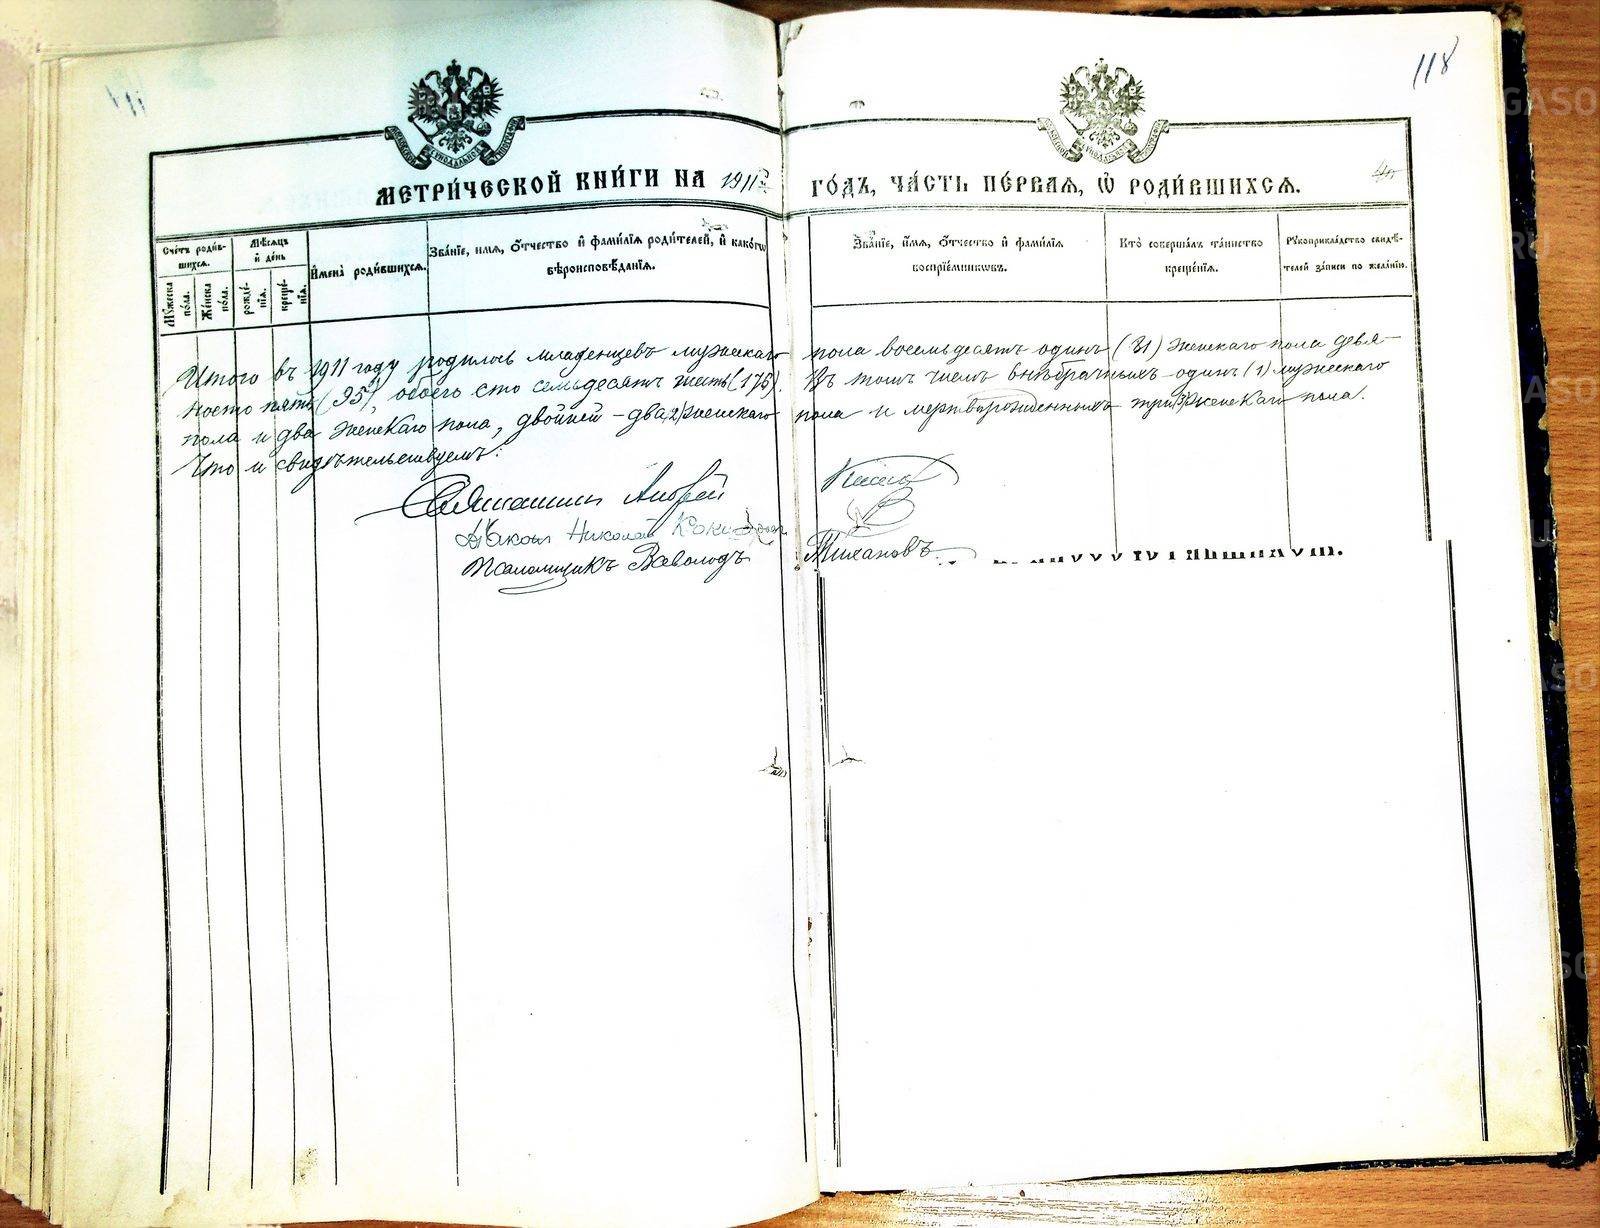 118
МЕТРИ́ЧЕСКОЙ КНИ́ГИ НА 1911 ГО́ДЪ, ЧА́СТЬ ПЕ́РВАЯ, Ѡ РОДИ́ВШИХСЯ.
Сче́тъ роди́вшихся.
Му́жеска по́ла.
Же́нска по́ла.
Мѣ́сяцъ и҆ де́нь
рожде́нїя.
креще́нїя.
И҆мена̀ роди́вшихся.
Зва́нїе, и҆мя, ѻ҆́тчество и҆ фами́лїя роди́телей, и҆ како́гѡ вѣроисповѣ́данїя.
Зва́нїе, и҆́мя, ѻ҆́тчество и҆ фами́лїя воспрїе́мникѡвъ.
Кто̀ соверша́лъ та́инство креще́нїя.
Рꙋкоприкла́дство свидѣ́телей за́писи по жела́нїю.
Итого въ 1911 году родилось младенцевъ мужескаго пола восемьдесятъ одинъ (81) женскаго пола девя-
носто пять (95), обоего сто семьдесятъ шесть (176). Въ томъ числѣ внѣбрачныхъ - одинъ (1) мужескаго
пола и два женскаго пола, двойней - два (2) женскаго пола и мертворожденныхъ три (3) женскаго пола.
Что и свидѣтельствуемъ:
Священникъ Андрей
Николай
Псаломщикъ Всеволодъ Тихановъ
GASO
RU
ASO
RU
ASO
GASO